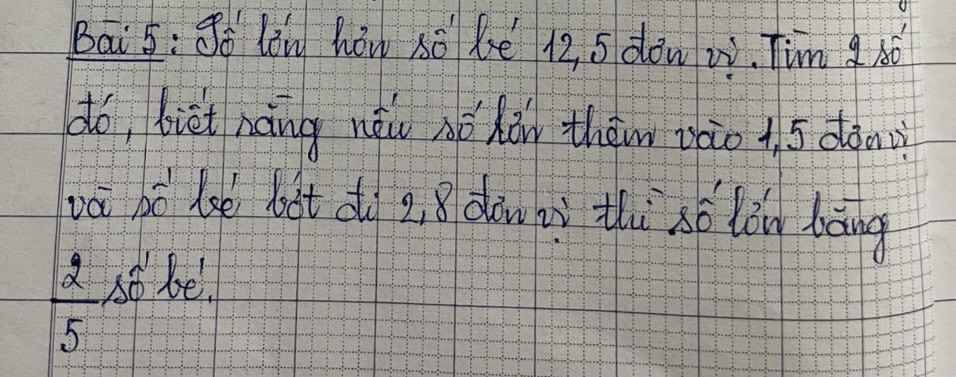 Bài 5: Số lớn hơn số bé 12,5 đơn vị. Tìm 2 số
đó, biết rằng nếu số lớn thêm vào 1,5 đơn vị
và số bé bớt đi 2,8 đơn vị thì số lớn bằng
2/5 số bé.